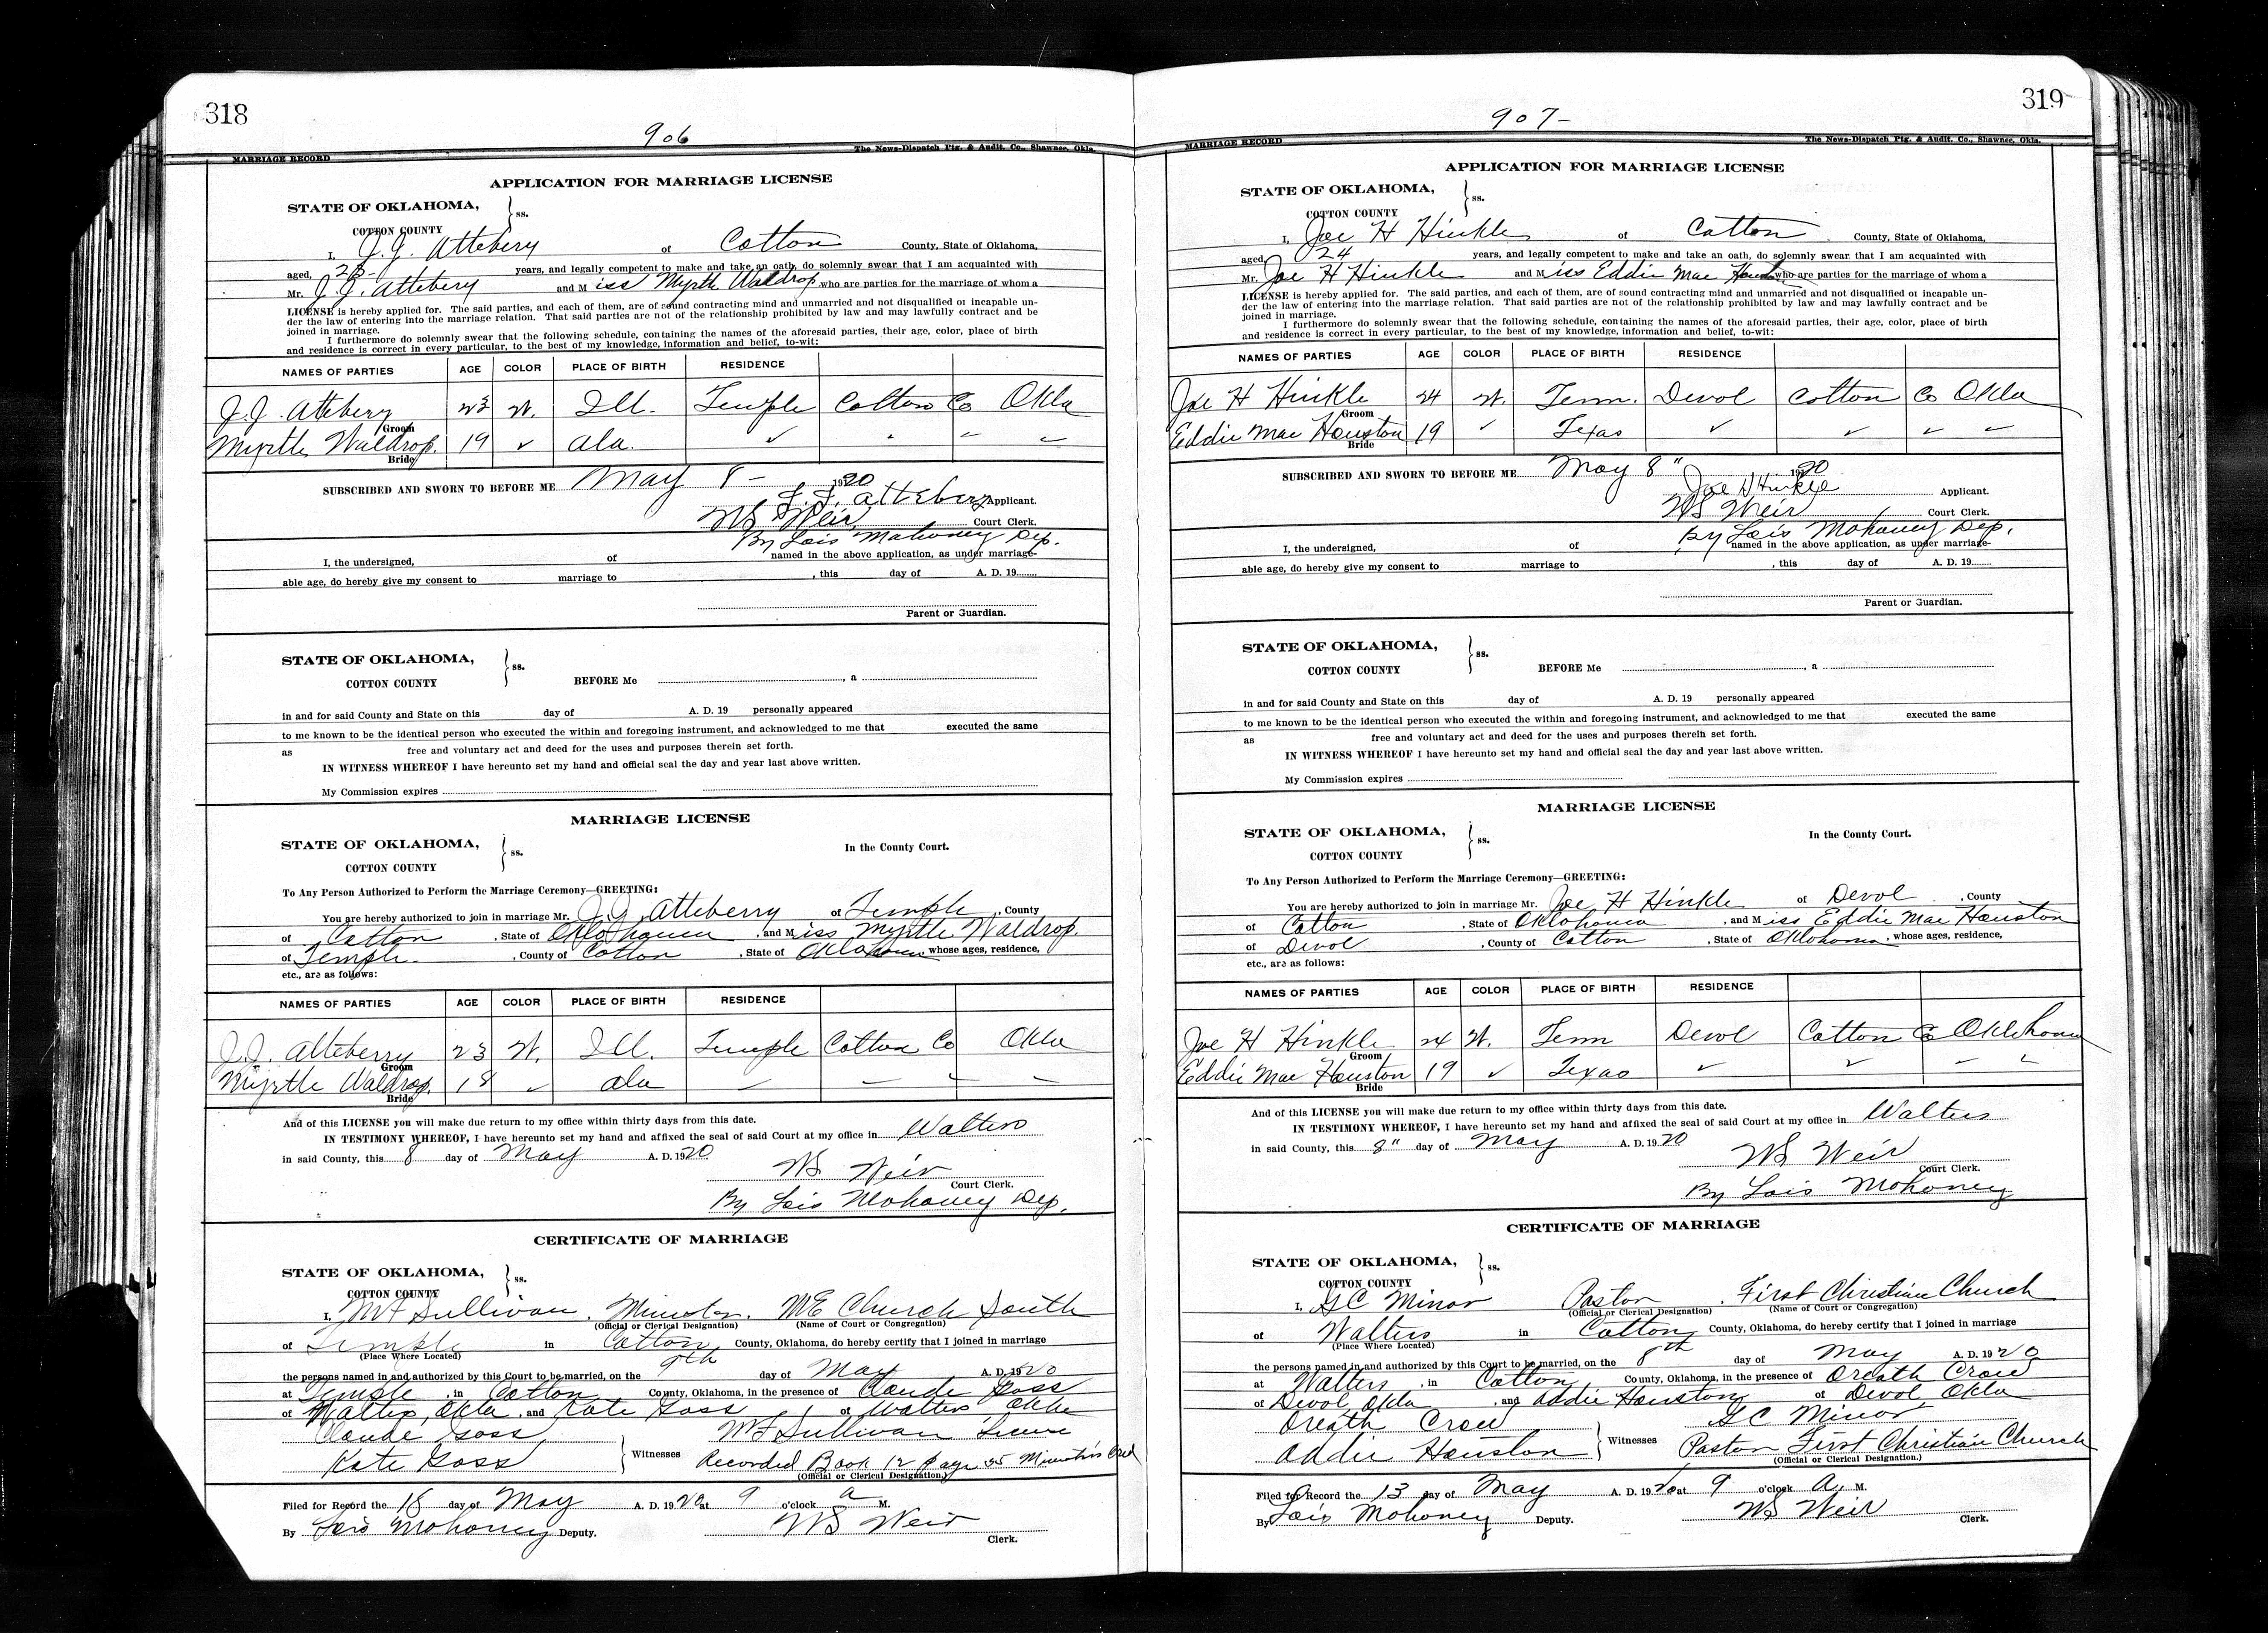 318
906
MARRIAGE RECORD The News-Dispatch Ptg. & Audit. Co., Shawnee, Okla.
APPLICATION FOR MARRIAGE LICENSE
STATE OF OKLAHOMA,
COTTON COUNTY } ss.
I, J.J. Attebery of Cotton County, State of Oklahoma,
aged, 23 years, and legally competent to make and take an oath, do solemnly swear that I am acquainted with
Mr. J.J. Attebery and Miss Myrtle Waldrop who are parties for the marriage of whom a
LICENSE is hereby applied for. The said parties, and each of them, are of sound contracting mind and unmarried and not disqualified or incapable un-
der the law of entering into the marriage relation. That said parties are not of the relationship prohibited by law and may lawfully contract and be
joined in marriage.
I furthermore do solemnly swear that the following schedule, containing the names of the aforesaid parties, their age, color, place of birth
and residence is correct in every particular, to the best of my knowledge, information and belief, to-wit:
NAMES OF PARTIES AGE COLOR PLACE OF BIRTH RESIDENCE
J.J. Attebery 23 W. Ill. Temple Cotton Co Okla
Groom
Myrtle Waldrop. 19 ✓ Ala. ✓ " – –
Bride
SUBSCRIBED AND SWORN TO BEFORE ME May 8 – 1920
J. J. Attebery Applicant.
WS Weir Court Clerk.
By Lois Mahoney Dep.
I, the undersigned, of named in the above application, as under marriage-
able age, do hereby give my consent to marriage to , this day of A. D. 19
Parent or Guardian.
STATE OF OKLAHOMA,
COTTON COUNTY } ss. BEFORE Me , a
in and for said County and State on this day of A. D. 19 personally appeared
to me known to be the identical person who executed the within and foregoing instrument, and acknowledged to me that executed the same
as free and voluntary act and deed for the uses and purposes therein set forth.
IN WITNESS WHEREOF I have hereunto set my hand and official seal the day and year last above written.
My Commission expires
MARRIAGE LICENSE
STATE OF OKLAHOMA,
COTTON COUNTY } ss. In the County Court.
To Any Person Authorized to Perform the Marriage Ceremony—GREETING:
You are hereby authorized to join in marriage Mr. J.J. Atteberry of Temple, County
of Cotton, State of Oklahoma, and Miss Myrtle Waldrop.
of Temple, County of Cotton, State of Oklahoma, whose ages, residence,
etc., are as follows:
NAMES OF PARTIES AGE COLOR PLACE OF BIRTH RESIDENCE
J.J. Atteberry 23 W. Ill. Temple Cotton Co Okla
Groom
Myrtle Waldrop. 18 ✓ Ala – – – –
Bride
And of this LICENSE you will make due return to my office within thirty days from this date.
IN TESTIMONY WHEREOF, I have hereunto set my hand and affixed the seal of said Court at my office in Walters
in said County, this 8 day of May A. D. 1920
WS Weir
Court Clerk.
By Lois Mohoney Dep.
CERTIFICATE OF MARRIAGE
STATE OF OKLAHOMA,
COTTON COUNTY } ss.
I, MF Sullivan, Minister. ME Church South
(Official or Clerical Designation) (Name of Court or Congregation)
of Temple in Cotton County, Oklahoma, do hereby certify that I joined in marriage
(Place Where Located)
the persons named in and authorized by this Court to be married, on the 9th day of May A. D. 1920
at Temple, in Cotton County, Oklahoma, in the presence of Claude Goss
of Walters, Okla, and Kate Goss of Walters, Okla
Claude Goss MF Sullivan
Kate Goss } Witnesses Recorded Book 12 page 35 Minister's Cred
(Official or Clerical Designation.)
Filed for Record the 18 day of May A. D. 1920 at 9 o'clock a M.
By Lois Mohoney Deputy. WS Weir
Clerk.
319
907-
MARRIAGE RECORD The News-Dispatch Ptg. & Audit. Co., Shawnee, Okla.
APPLICATION FOR MARRIAGE LICENSE
STATE OF OKLAHOMA,
COTTON COUNTY } ss.
I, Joe H Hinkle of Cotton County, State of Oklahoma,
aged 24 years, and legally competent to make and take an oath, do solemnly swear that I am acquainted with
Mr. Joe H Hinkle and Miss Eddie Mae Houston who are parties for the marriage of whom a
LICENSE is hereby applied for. The said parties, and each of them, are of sound contracting mind and unmarried and not disqualified or incapable un-
der the law of entering into the marriage relation. That said parties are not of the relationship prohibited by law and may lawfully contract and be
joined in marriage.
I furthermore do solemnly swear that the following schedule, containing the names of the aforesaid parties, their age, color, place of birth
and residence is correct in every particular, to the best of my knowledge, information and belief, to-wit:
NAMES OF PARTIES AGE COLOR PLACE OF BIRTH RESIDENCE
Joe H Hinkle 24 W. Tenn. Devol Cotton Co Okla
Groom
Eddie Mae Houston 19 ✓ Texas ✓ ✓ – –
Bride
SUBSCRIBED AND SWORN TO BEFORE ME May 8" 1920
Joe H Hinkle Applicant.
WS Weir Court Clerk.
By Lois Mohoney Dep.
I, the undersigned, of named in the above application, as under marriage-
able age, do hereby give my consent to marriage to , this day of A. D. 19
Parent or Guardian.
STATE OF OKLAHOMA,
COTTON COUNTY } ss. BEFORE Me , a
in and for said County and State on this day of A. D. 19 personally appeared
to me known to be the identical person who executed the within and foregoing instrument, and acknowledged to me that executed the same
as free and voluntary act and deed for the uses and purposes therein set forth.
IN WITNESS WHEREOF I have hereunto set my hand and official seal the day and year last above written.
My Commission expires
MARRIAGE LICENSE
STATE OF OKLAHOMA,
COTTON COUNTY } ss. In the County Court.
To Any Person Authorized to Perform the Marriage Ceremony—GREETING:
You are hereby authorized to join in marriage Mr. Joe H Hinkle of Devol, County
of Cotton, State of Oklahoma, and Miss Eddie Mae Houston
of Devol, County of Cotton, State of Oklahoma, whose ages, residence,
etc., are as follows:
NAMES OF PARTIES AGE COLOR PLACE OF BIRTH RESIDENCE
Joe H Hinkle 24 W. Tenn Devol Cotton Co Oklahoma
Groom
Eddie Mae Houston 19 ✓ Texas ✓ ✓ – –
Bride
And of this LICENSE you will make due return to my office within thirty days from this date.
IN TESTIMONY WHEREOF, I have hereunto set my hand and affixed the seal of said Court at my office in Walters
in said County, this 8" day of May A. D. 1920
WS Weir
Court Clerk.
By Lois Mohoney
CERTIFICATE OF MARRIAGE
STATE OF OKLAHOMA,
COTTON COUNTY } ss.
I, GC Minor Pastor, First Christian Church
(Official or Clerical Designation) (Name of Court or Congregation)
of Walters in Cotton County, Oklahoma, do hereby certify that I joined in marriage
(Place Where Located)
the persons named in and authorized by this Court to be married, on the 8th day of May A. D. 1920
at Walters, in Cotton County, Oklahoma, in the presence of Oreath Crow
of Devol, Okla, and Addie Houston of Devol, Okla
Oreath Crow GC Minor
Addie Houston } Witnesses Pastor First Christian Church
(Official or Clerical Designation.)
Filed for Record the 13 day of May A. D. 1920 at 9 o'clock A. M.
By Lois Mohoney Deputy. WS Weir
Clerk.